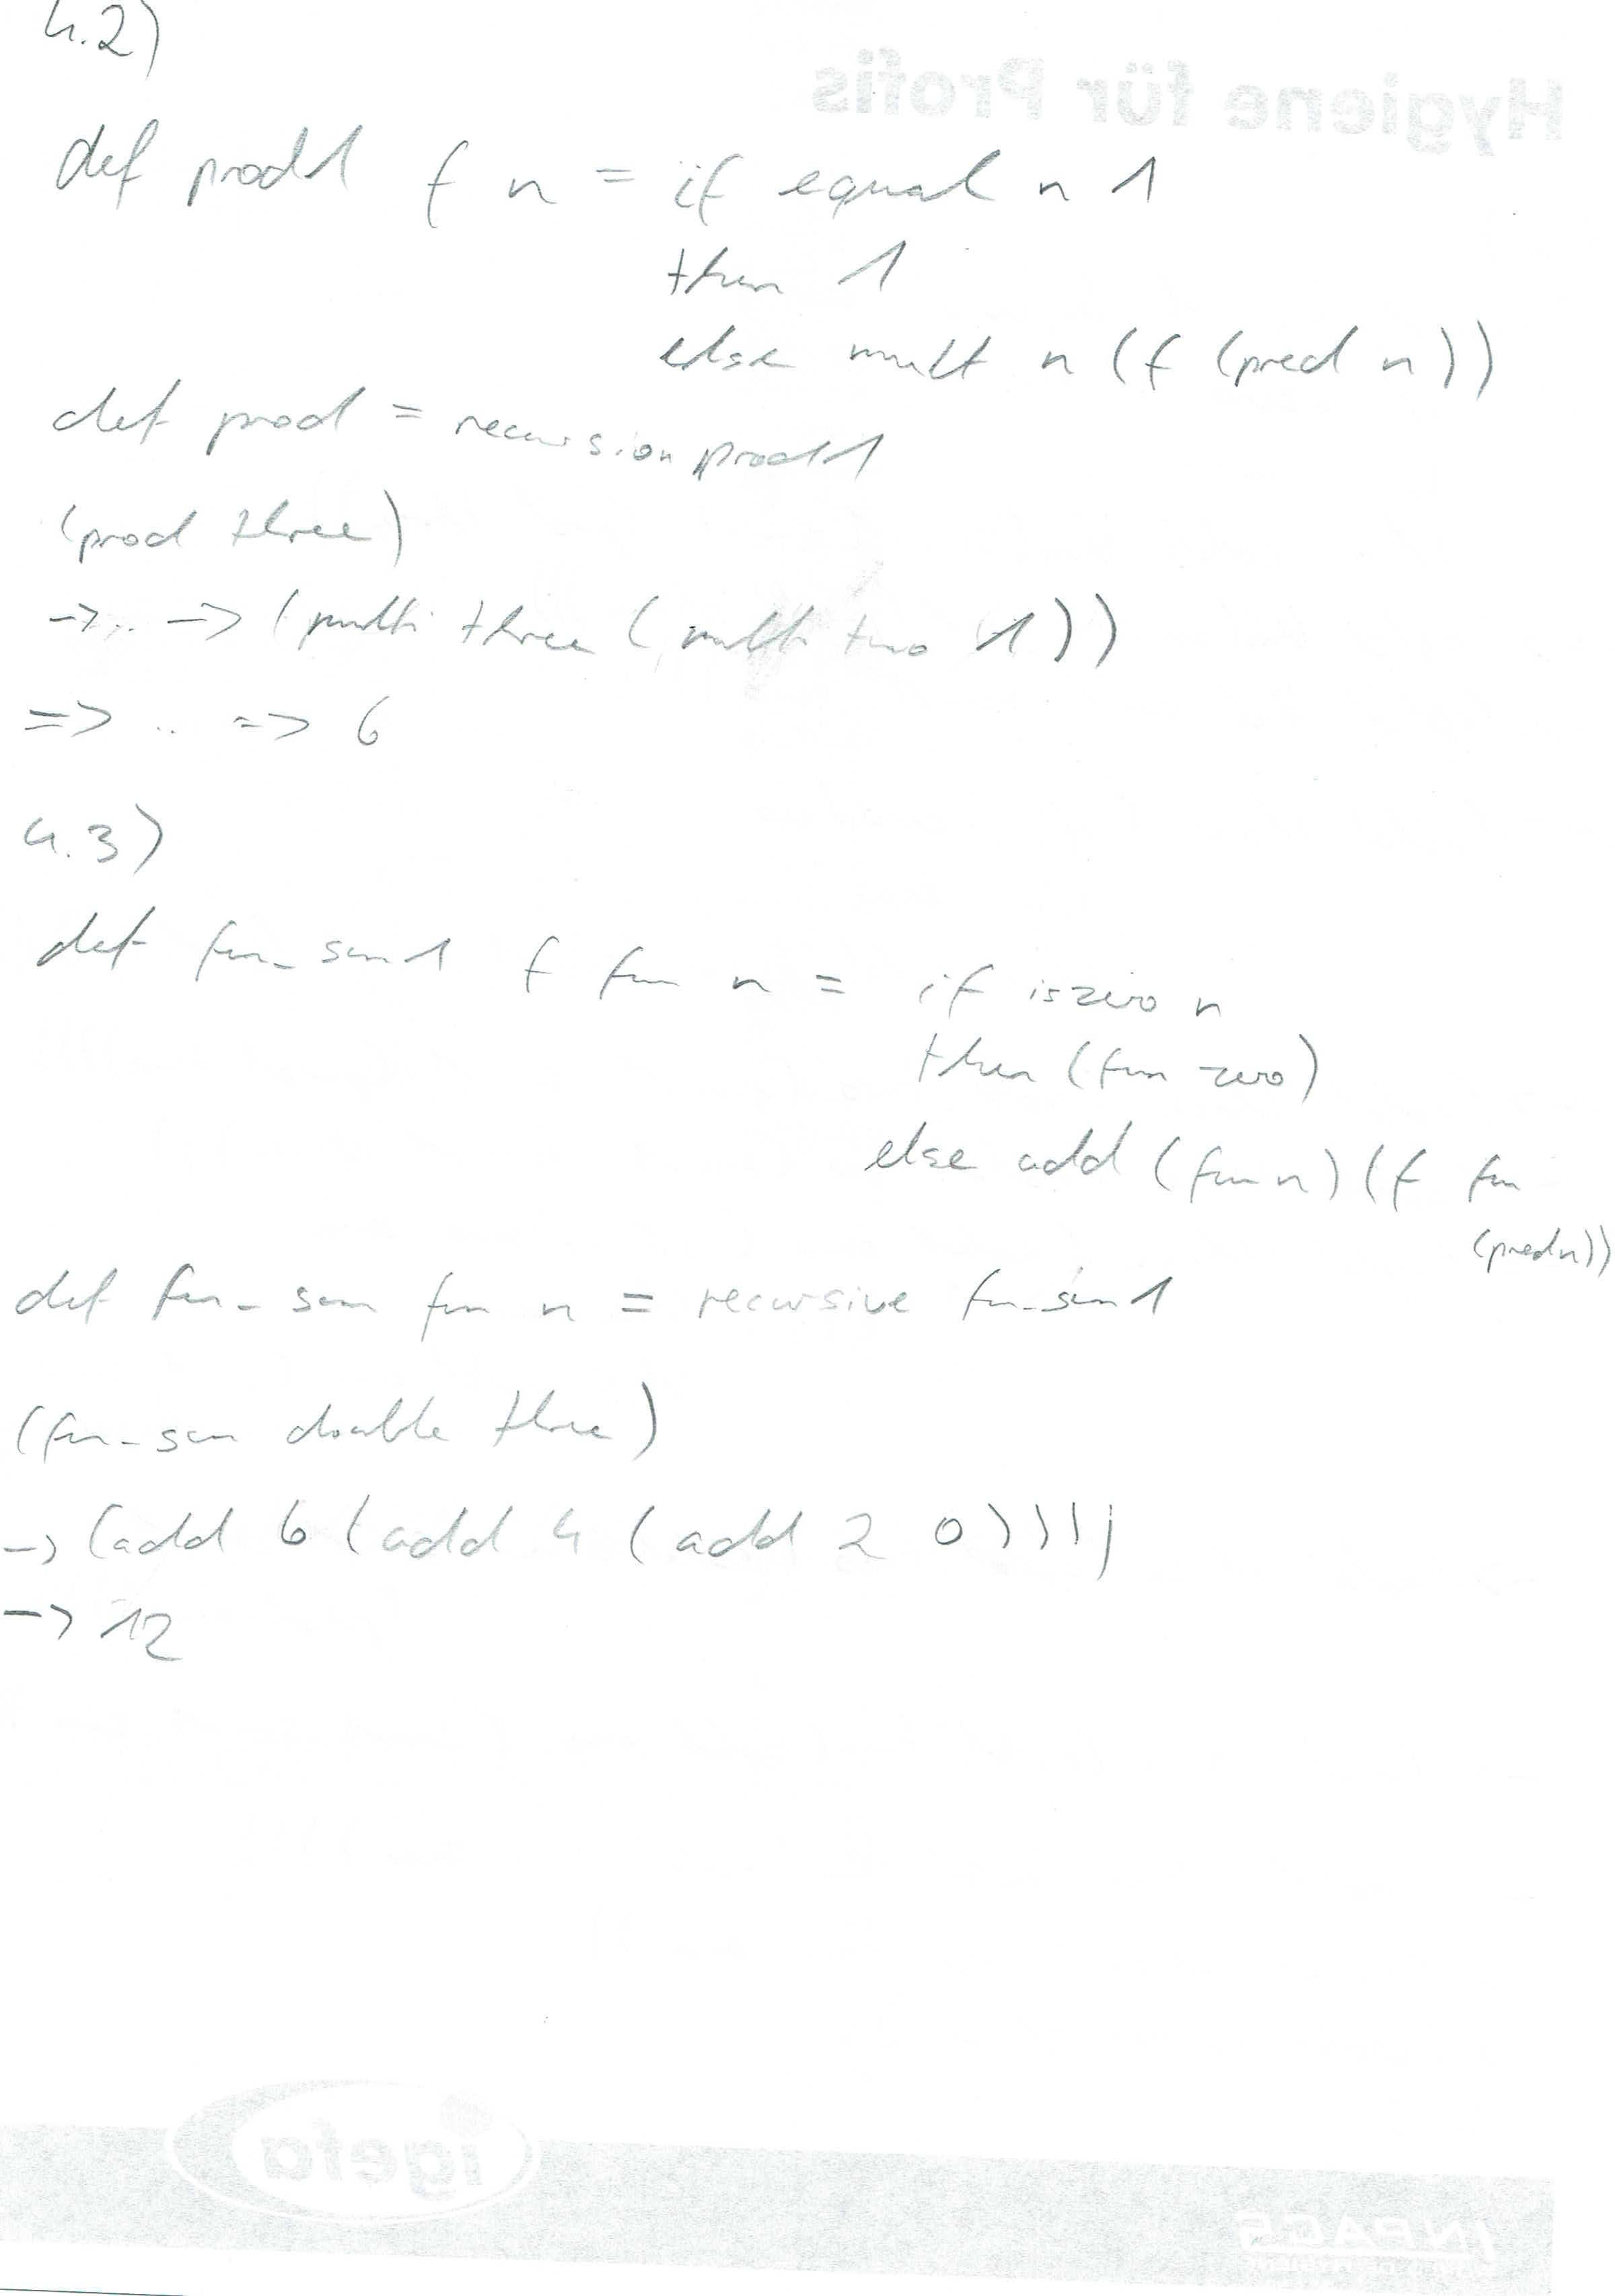 4.2)
Hygiene für Profis
def prod1 f n = if equal n 1
then 1
else mult n (f (pred n))
def prod = recursion prod1
(prod three)
-> .. -> (multi three (multi two 1))
=> .. => 6
4.3)
def fun_sum1 f fun n = if iszero n
then (fun zero)
else add (fun n) (f fun
(pred n))
def fun_sum fun n = recursive fun_sum1
(fun_sum double three)
-> (add 6 (add 4 (add 2 0))))
-> 12
igefa
INPACS